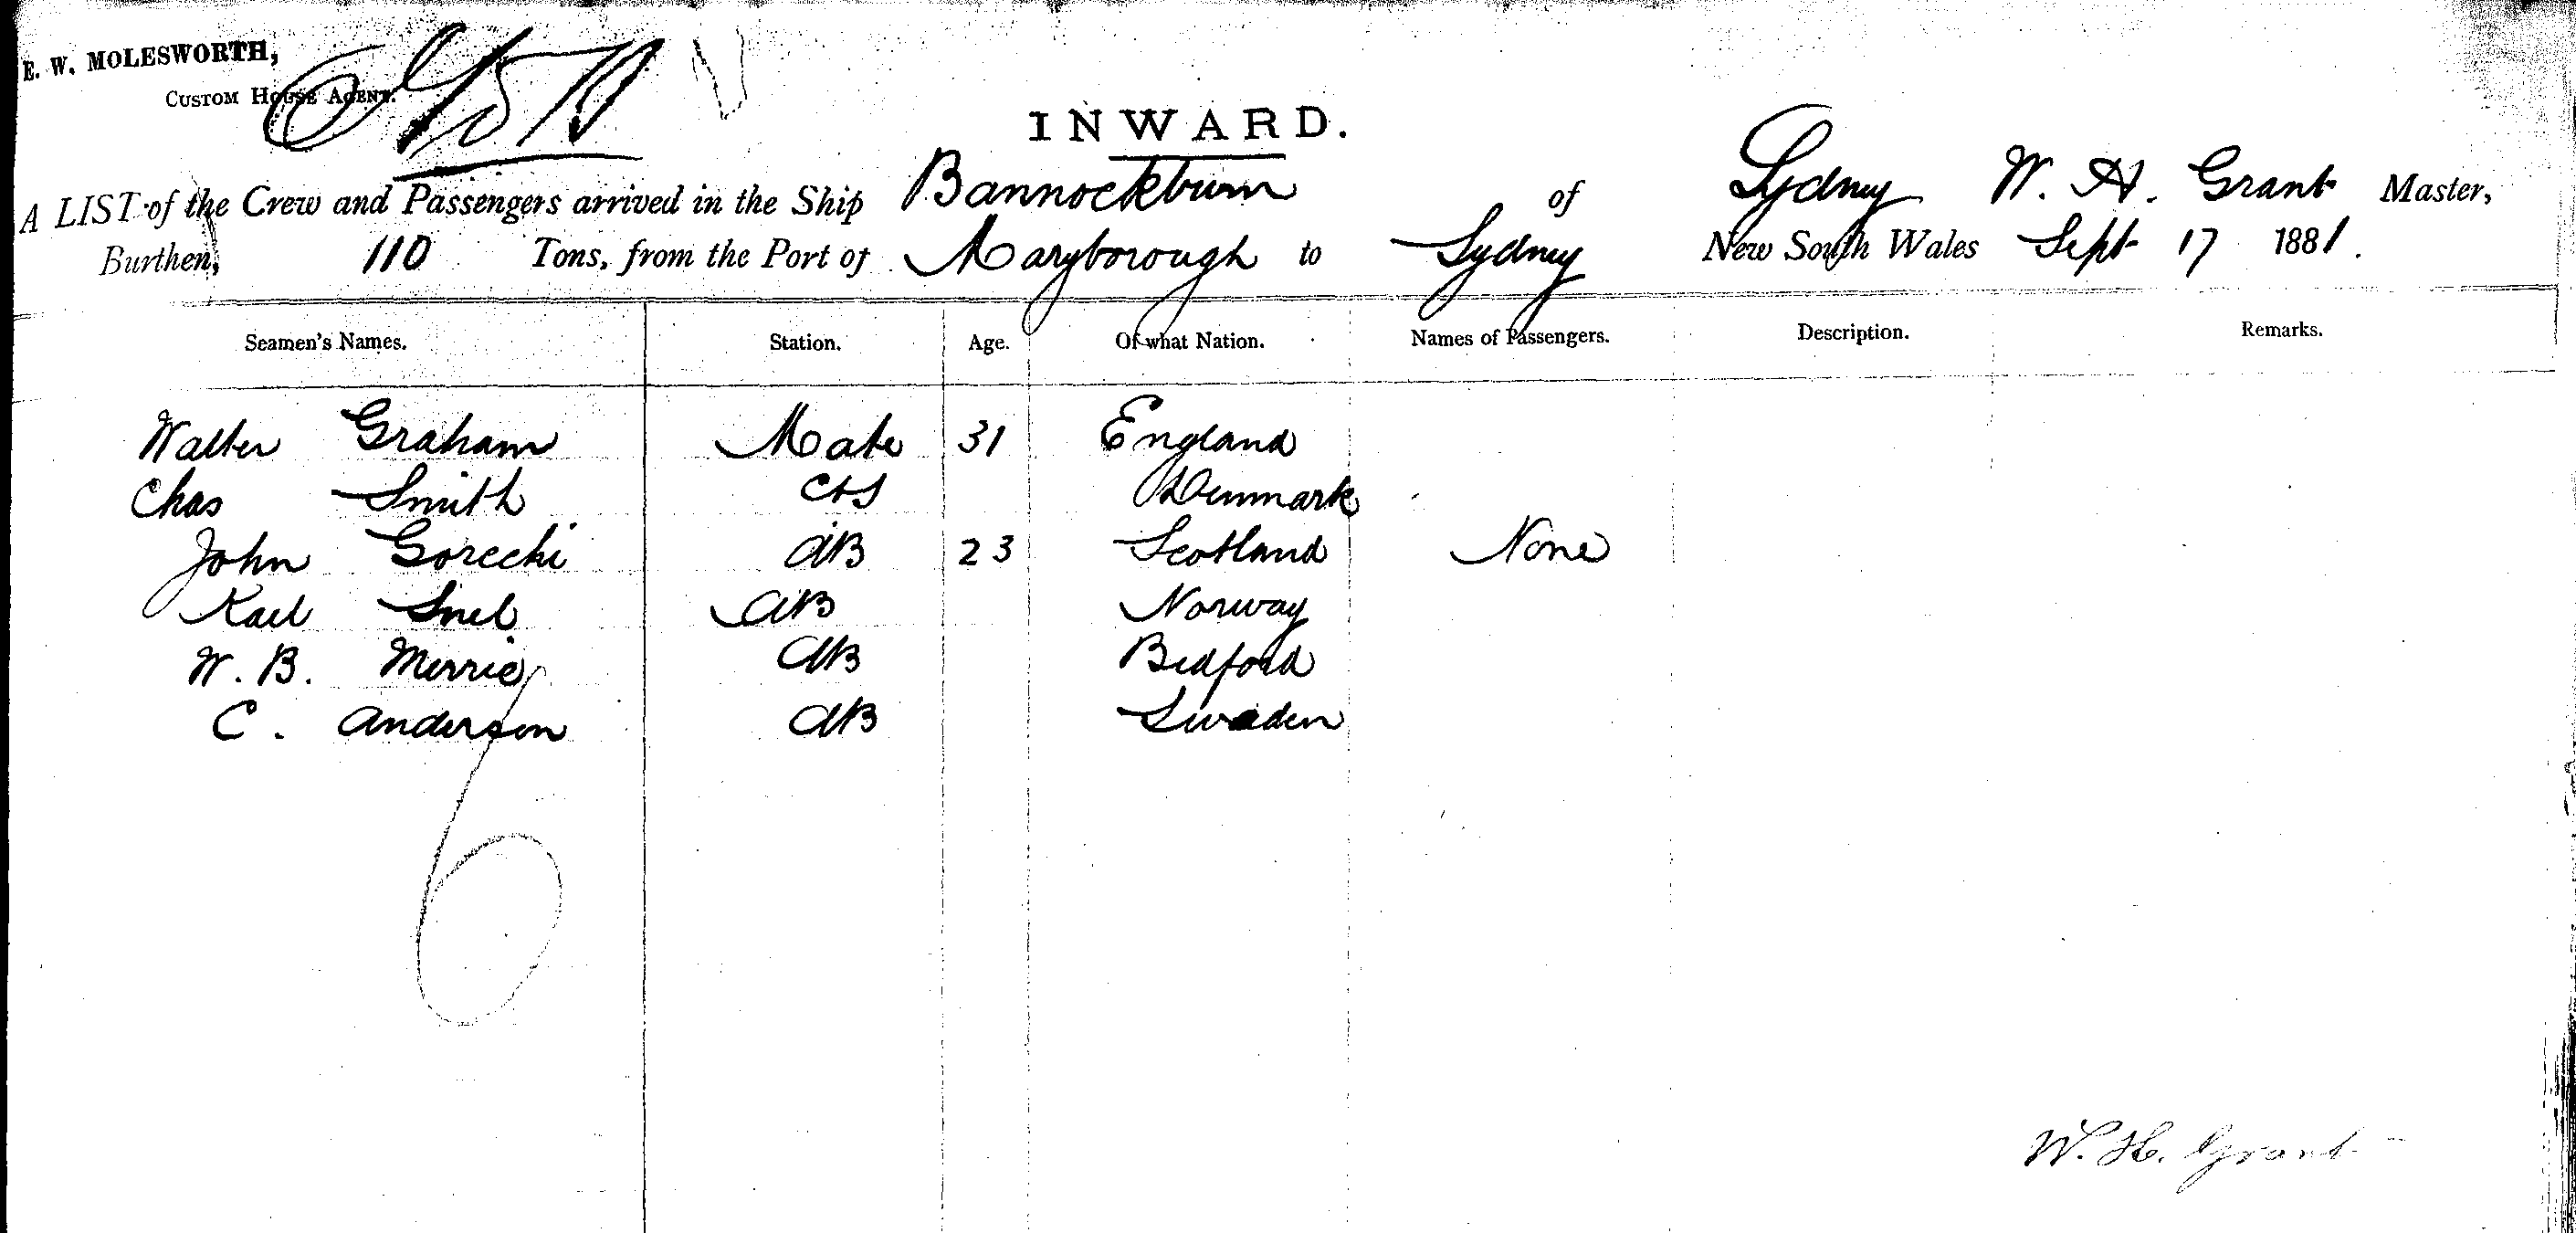 E. W. MOLESWORTH,
CUSTOM HOUSE AGENT.
INWARD.
A LIST of the Crew and Passengers arrived in the Ship Bannockburn of Sydney W. H. Grant Master,
Burthen, 110 Tons, from the Port of Maryborough to Sydney New South Wales Sept 17 1881.
Seamen's Names. Station. Age. Of what Nation. Names of Passengers. Description. Remarks.
Walter Graham Mate 31 England
Chas Smith C&S Denmark
John Gorecki AB 23 Scotland None
Karl Snel AB Norway
W. B. Merrie AB Bedford
C. Anderson AB Sweden
6
W. H. Grant